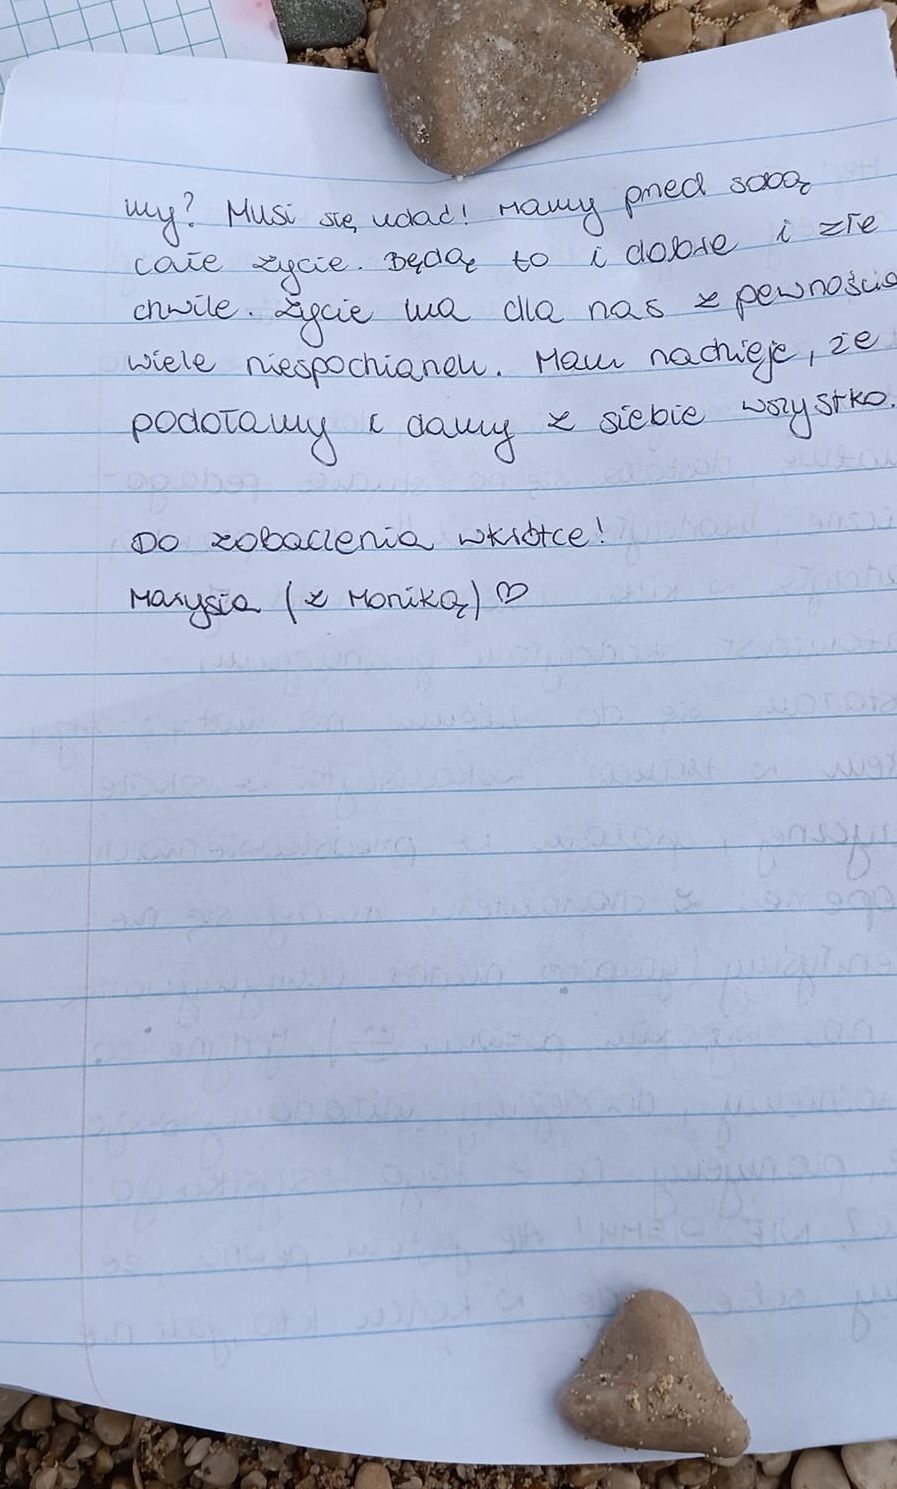 my? Musi się udać! Mamy pned sobą
całe życie. Będą to i dobre i złe
chwile. Życie ma dla nas z pewnością
wiele niespodzianek. Mam nadzieję, że
podołamy i damy z siebie wszystko.
Do zobaczenia wkrótce!
Marysia (z Moniką) ♡